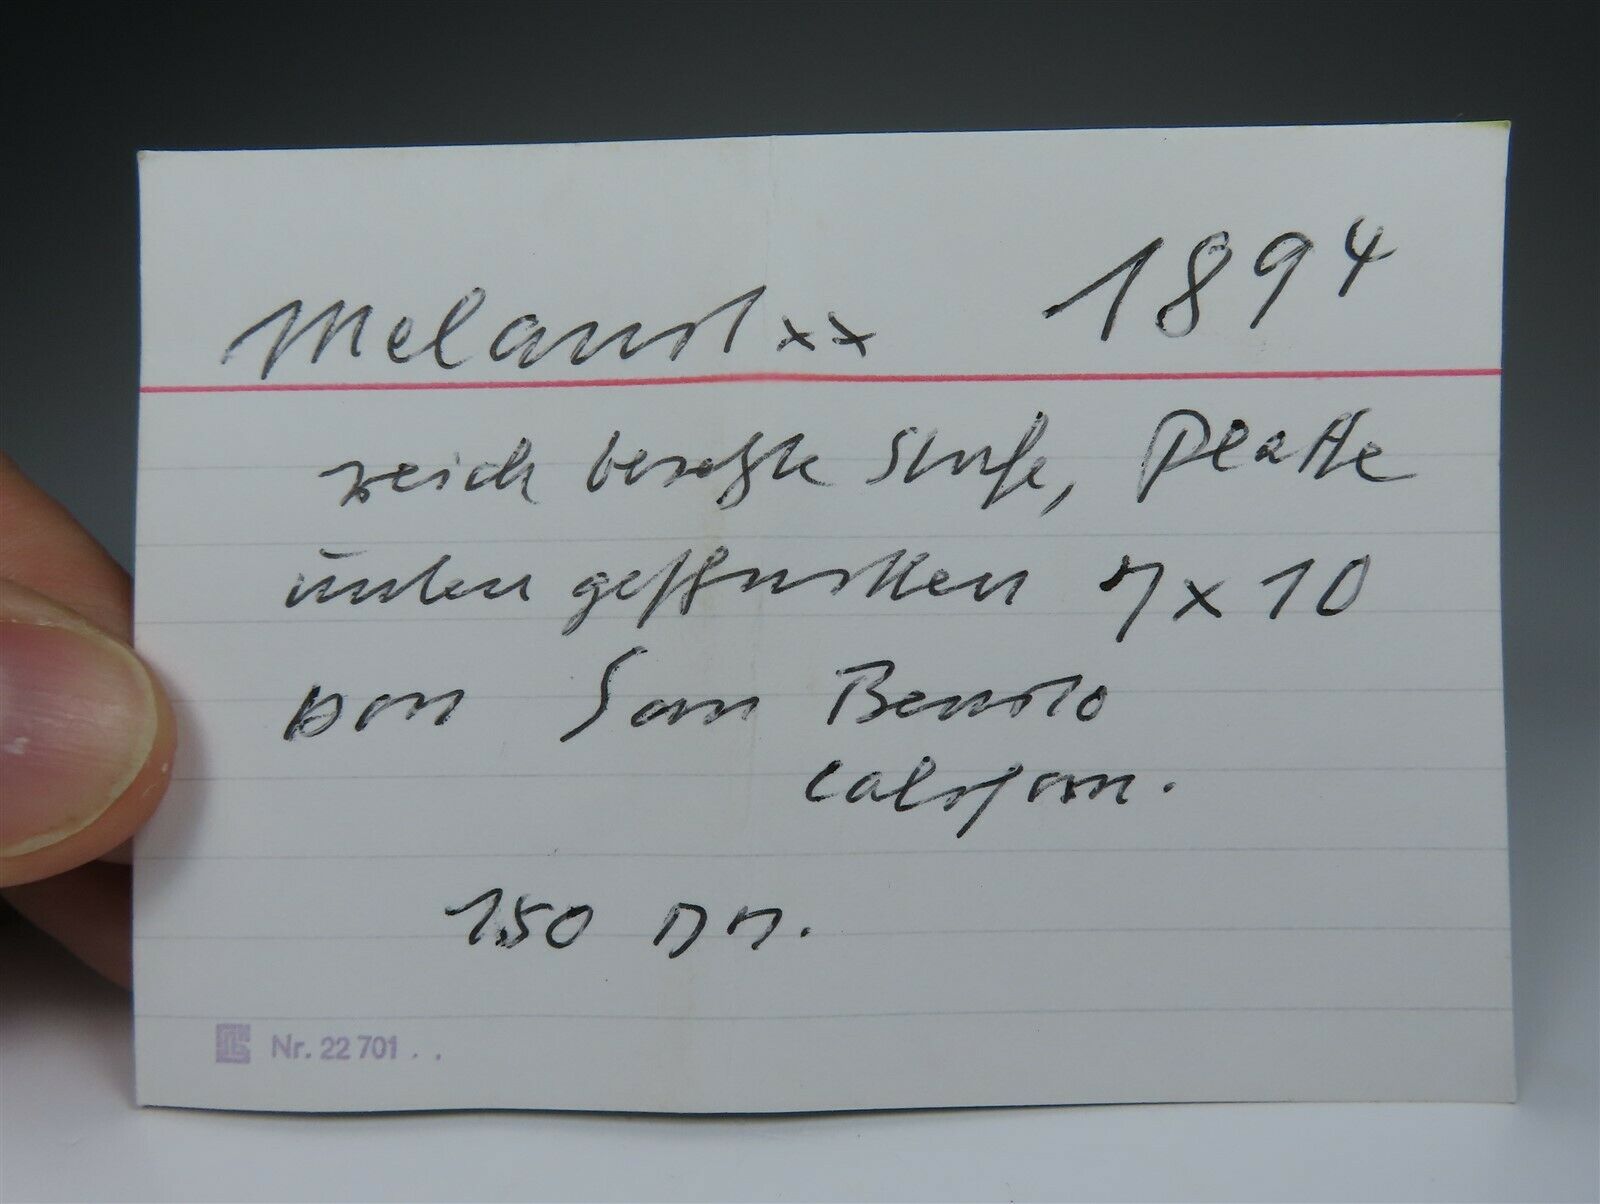 Melanit xx 1894
reich besetzte Stufe, Platte
unten geschnitten 7 x 10
von San Benito
Californ.
150
Nr. 22 701 . .